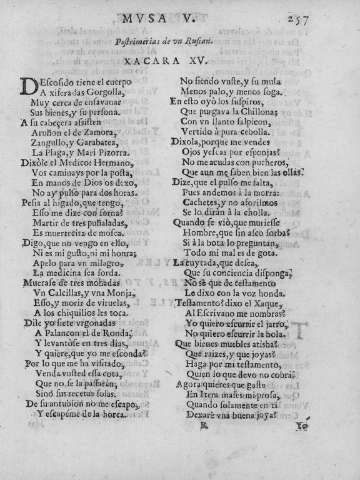 MVSA V.
257
Postrimerias de vn Rufian.
XACARA XV.
DEscosido tiene el cuerpo
A xiferadas Gorgolla,
Muy cerca de ensavanar
Sus bienes, y su persona.
A su cabeçera asisten
Aroñon el de Zamora,
Zangullo, y Garabatea,
La Plaga, y Mari Pizorra.
Dixole el Medico: Hermano,
Vos caminays por la posta,
En manos de Dios os dexo,
No ay pulso para dos horas.
Pesia al higado, que tengo,
Esso me dize con sorna?
Martir de tres puñaladas,
Es muerecita de mosca.
Digo, que no vengo en ello,
Ni es mi gusto, ni mi honra;
Apelo para vn milagro,
La medicina sea sorda.
Muerase de tres mohadas
Vn Calcillas, y vna Monja,
Esso, y morir de viruelas,
A los chiquillos les toca.
Dile yo siete vrgonadas
A Palancon el de Ronda,
Y levantòse en tres dias,
Y quiere, que yo me esconda?
Por lo que ha visitado,
Venda vusted esta cota,
Que no se la passaràn,
Sinò sus recetas solas.
De su antubion no me escapo,
Y escapème de la horca.
No siendo vuste, y su mula
Menos palo, y menos soga.
En esto oyò los suspiros,
Que purgava la Chillona
Con vn llanto salpicon,
Vertido à pura cebolla.
Dixola, porque me vendes
Ojos yescas por esponjas?
No me acudas con pucheros,
Que aun me saben bien las ollas.
Dize, que el pulso me falta,
Pues andemos à la morra:
Cachetes, y no aforismos
Se lo diràn à la cholla.
Quando se viò, que muriesse
Hombre, que sin asco sorba?
Si à la bota lo preguntan,
Todo mi mal es de gota.
La cuytada, que desea,
Que su conciencia disponga,
No sè que de testamento
Le dixo con la voz honda.
Testamento? dixo el Xaque,
Al Escrivano me nombras?
Yo quiero escurrir el jarro,
No quiero escurrir la bola.
Que bienes muebles atisba?
Què raizes, y que joyas?
Haga por mi testamento,
Quien lo que devo no cobra.
Agora quieres que gaste
En letra mases mi prosa,
Quando solamente en ti
Dexarè vna buena joya?
R
Yo